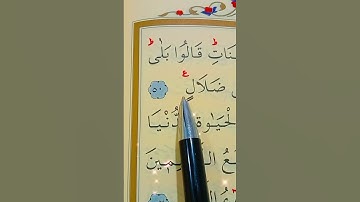 ـنَاتِۜ قَالُوا بَلٰىۜ
ضَلَالٍ ع ٥٠
الْحَيٰوةِ الدُّنْيَا
ـعُ الظَّالِمِينَ